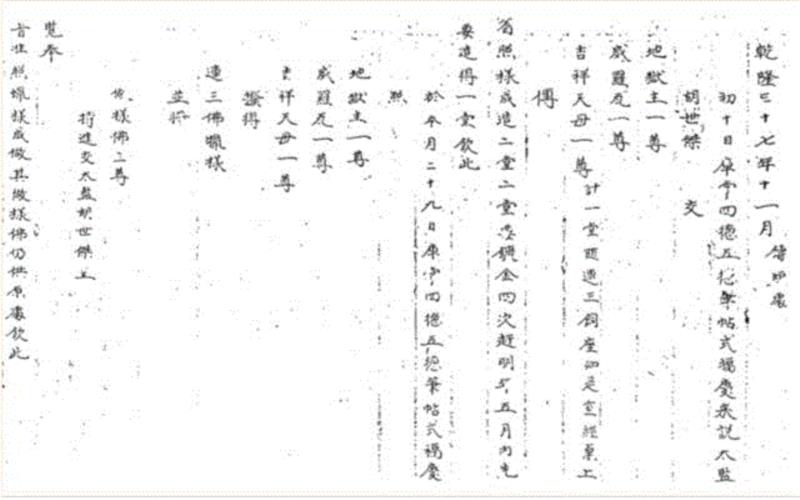 乾隆三十七年十一月
初十日庫掌四德五德筆帖式福慶來說太監
胡世傑 交
地獄主一尊
威羅瓦一尊
吉祥天母一尊
傳
旨照樣成造二堂二堂
鍍金四次趕明年五月內先
要造得一堂欽此
於本月二十九日庫掌四德五德筆帖式福慶
將
地獄主一尊
威羅瓦一尊
吉祥天母一尊
撥得
造三佛蠟樣
並將
做樣佛三尊
持進交太監胡世傑呈
覽奉
旨准照蠟樣成做其做樣佛仍供原處欽此